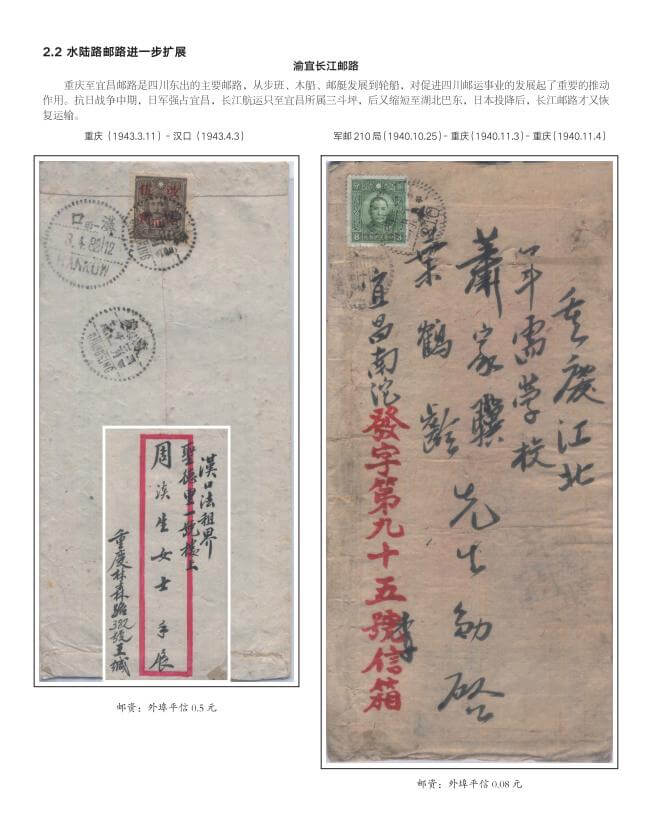 2.2 水陆路邮路进一步扩展
渝宜长江邮路
重庆至宜昌邮路是四川东出的主要邮路，从步班、木船、邮艇发展到轮船，对促进四川邮运事业的发展起了重要的推动
作用。抗日战争中期，日军强占宜昌，长江航运只至宜昌所属三斗坪，后又缩短至湖北巴东，日本投降后，长江邮路才又恢
复运输。
重庆（1943.3.11）- 汉口（1943.4.3）
漢口
HANKOW
漢口法租界
聖德里一號樓上
周 生女士 手展
重慶林森路 號王緘
邮资：外埠平信 0.5 元
军邮 210 局（1940.10.25）- 重庆（1940.11.3）- 重庆（1940.11.4）
重慶江北
軍需學校
蕭家驥
鶴齡 先生勛啓
宜昌南沱
發字第九十五號信箱
邮资：外埠平信 0.08 元